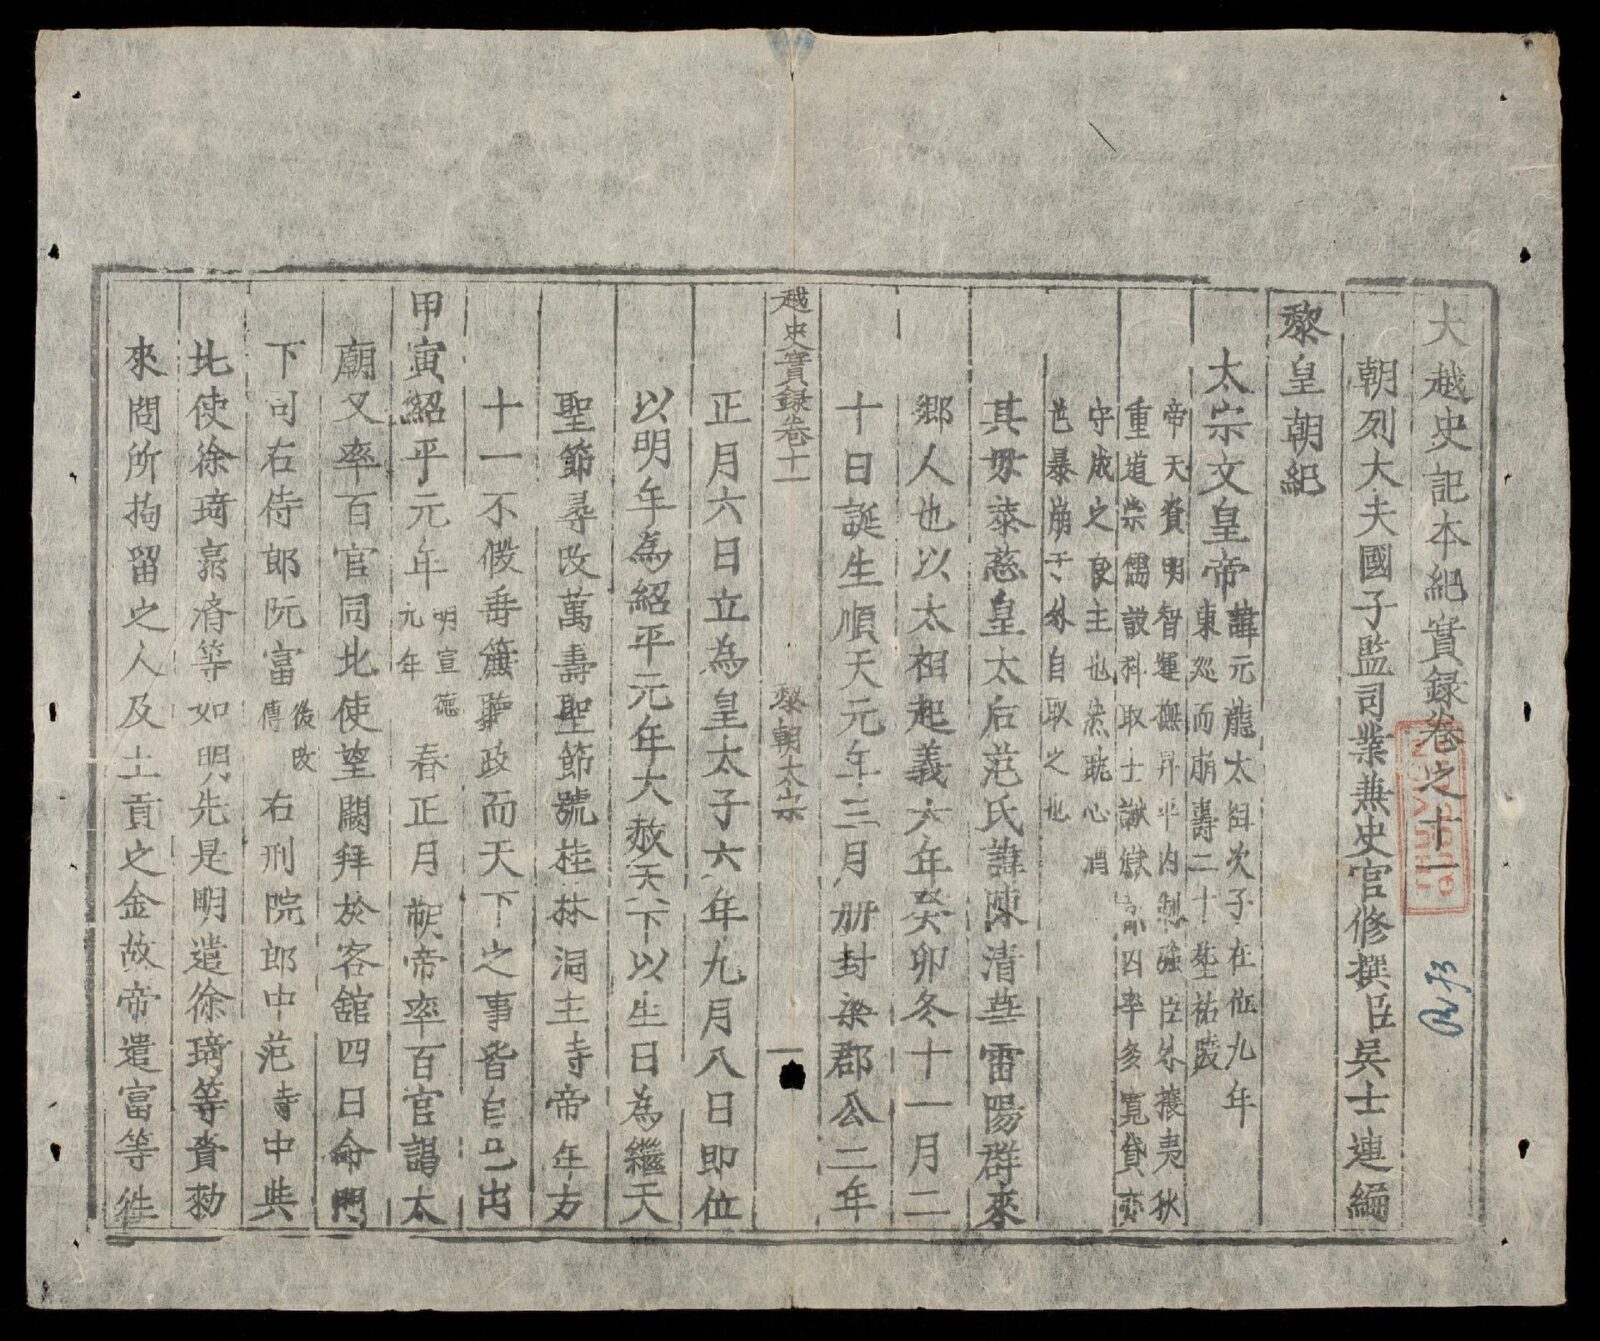 大越史記本紀實録卷之十一
朝列大夫國子監司業兼史官修撰臣吳士連編
黎皇朝紀
太宗文皇帝
諱元龍太祖次子在位九年
東巡而崩壽二十塟祐陵
帝天資明智運撫昇平内制強臣外攘夷狄
重道崇儒設科取士讞獄 四率多寬貸亦
守成之良主也然眈心酒
色暴崩于外自取之也
其母恭慈皇太后范氏諱陳清華雷陽群來
鄉人也以太相起義六年癸卯冬十一月二
十日誕生順天元年三月册封梁郡公二年
越史實録卷十一
黎朝太宗
一
正月六日立為皇太子六年九月八日即位
以明年為紹平元年大赦天下以生日為繼天
聖節尋改萬壽聖節號桂林洞主寺帝年方
十一不假垂簾聽政而天下之事皆自己出
甲寅紹平元年
明宣德
元年
春正月朔帝率百官謁太
廟又率百官同北使望闕拜於客舘四日命門
下司右侍郎阮富
後改
傳
右刑院郎中范時中與
北使徐琦郭濟等如明先是明遣徐琦等賫勑
來問所拘留之人及土貢之金故帝遣富等往